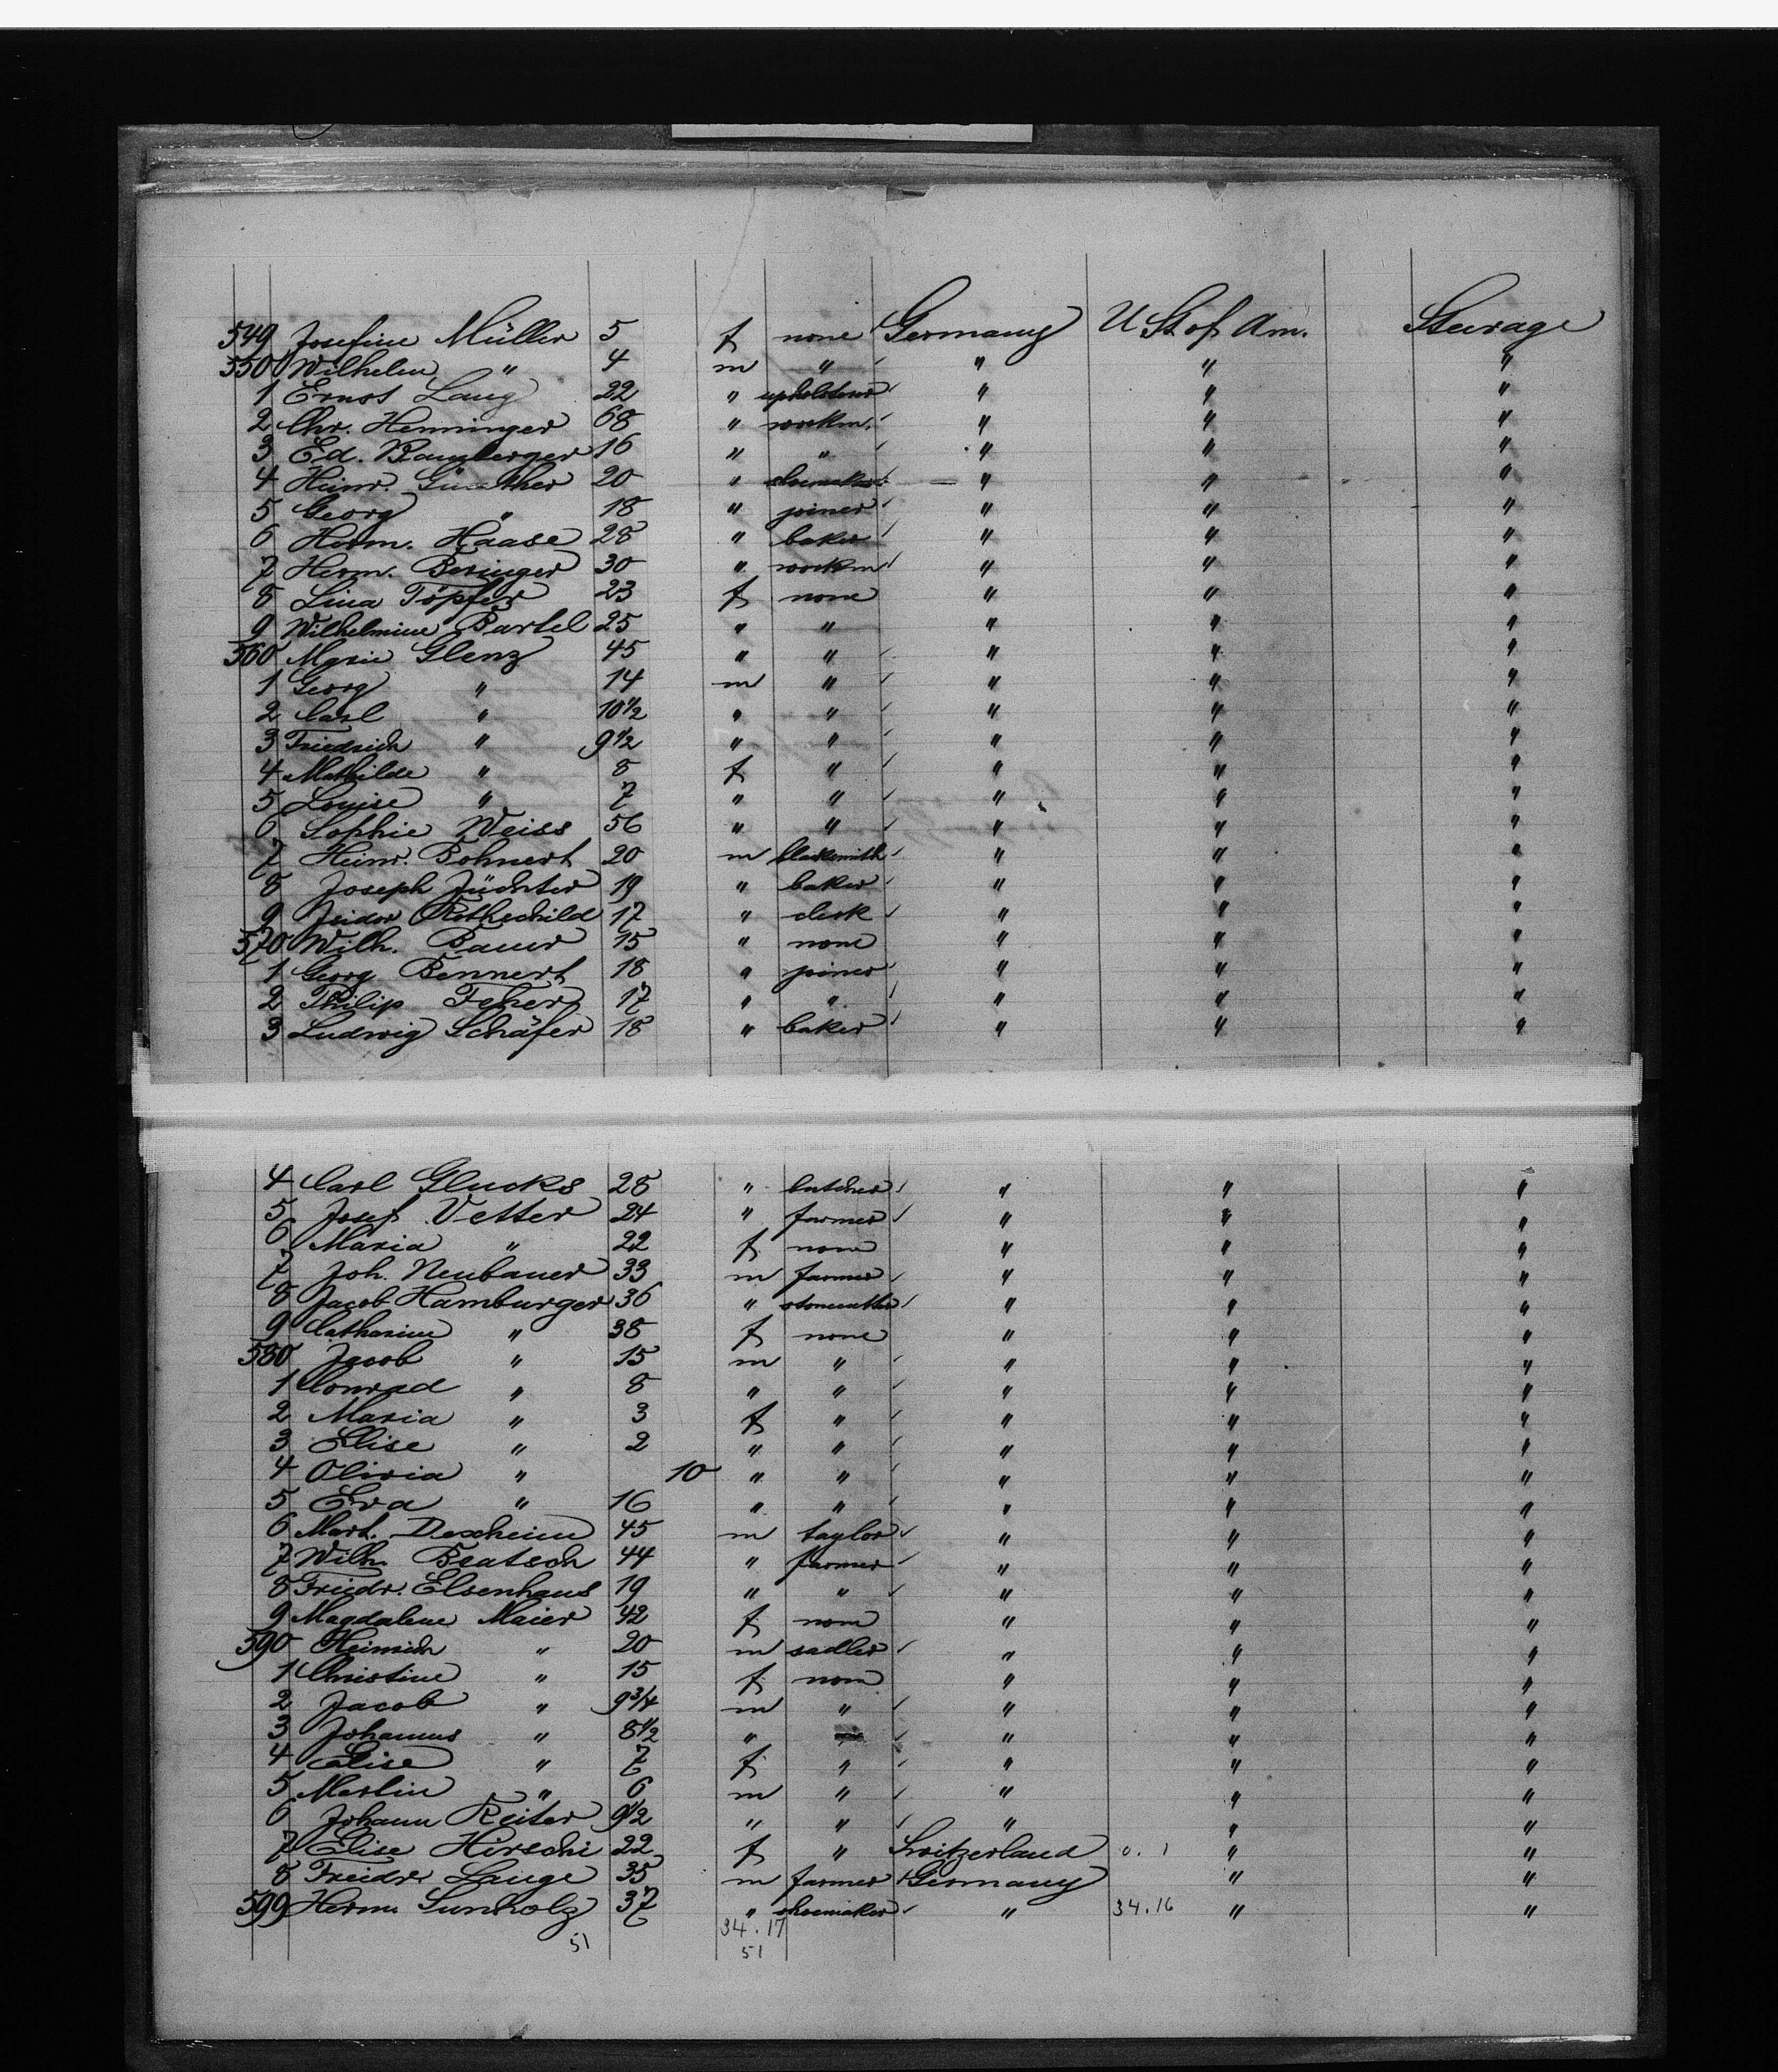 549 Josefine Müller 5 f none Germany U St of Am. Steerage
550 Wilhelm " 4 m " " " "
1 Ernst Lang 22 " upholsterer " " "
2 Chr. Henninger 68 " workm. " " "
3 Ed. Bamberger 16 " " " " "
4 Heinr. Günther 20 " shoemaker " " "
5 Georg " 18 " joiner " " "
6 Herm. Haase 28 " baker " " "
7 Herm. Beringer 30 " workm " " "
8 Lina Töpfer 23 f none " " "
9 Wilhelmine Bartel 25 " " " " "
560 Marie Glenz 45 " " " " "
1 Georg " 14 m " " " "
2 Carl " 10 1/2 " " " " "
3 Friedrich " 9 1/2 " " " " "
4 Mathilde " 8 f " " " "
5 Louise " 7 " " " " "
6 Sophie Weiss 56 " " " " "
7 Heinr. Bohnert 20 m blacksmith " " "
8 Joseph Jüchter 19 " baker " " "
9 Isidor Rothschild 17 " clerk " " "
570 Wilh. Bauer 15 " none " " "
1 Georg Bennert 18 " joiner " " "
2 Philip Feher 17 " " " " "
3 Ludwig Schäfer 18 " baker " " "
4 Carl Glucks 28 " butcher " " "
5 Josef Vetter 24 " farmer " " "
6 Maria " 22 f none " " "
7 Joh. Neubauer 33 m farmer " " "
8 Jacob Hamburger 36 " stonecutter " " "
9 Catharine " 38 f none " " "
580 Jacob " 15 m " " " "
1 Conrad " 8 " " " " "
2 Maria " 3 f " " " "
3 Elise " 2 " " " " "
4 Olivia " 10 " " " " "
5 Eva " 16 " " " " "
6 Mart. Dexheim 45 m taylor " " "
7 Wilh. Bratsch 44 " farmer " " "
8 Friedr. Elsenhans 19 " " " " "
9 Magdalene Maier 42 f none " " "
590 Heinrich " 20 m sadler " " "
1 Christine " 15 f none " " "
2 Jacob " 9 3/4 m " " " "
3 Johannes " 8 1/2 " " " "
4 Elise " 7 f " " " "
5 Martin " 6 m " " " "
6 Johann Reiter 9 1/2 " " " " "
7 Elise Hirschi 22 f " Switzerland 0. 1 " "
8 Friedr Lange 35 m farmer Germany " "
599 Herm. Sunholz 37 " shoemaker " 34.16 " "
34.17
51 51